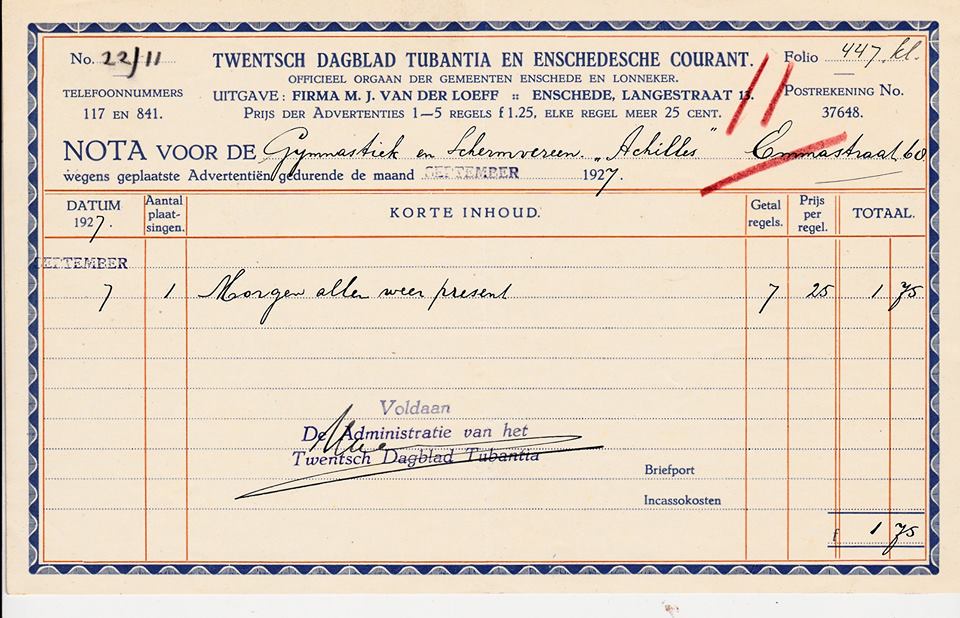 No. 22/11
TELEFOONNUMMERS
117 EN 841.
TWENTSCH DAGBLAD TUBANTIA EN ENSCHEDESCHE COURANT.
OFFICIEEL ORGAAN DER GEMEENTEN ENSCHEDE EN LONNEKER.
UITGAVE: FIRMA M. J. VAN DER LOEFF :: ENSCHEDE, LANGESTRAAT 13.
PRIJS DER ADVERTENTIES 1—5 REGELS f 1.25, ELKE REGEL MEER 25 CENT.
Folio 447. kl.
POSTREKENING NO.
37648.
11
NOTA VOOR DE Gymnastiek en Schermvereen. „Achilles" Emmastraat 60
wegens geplaatste Advertentiën gedurende de maand SEPTEMBER 1927.
DATUM
1927.
Aantal
plaat-
singen.
KORTE INHOUD.
Getal
regels.
Prijs
per
regel.
TOTAAL.
SEPTEMBER
7 1 Morgen allen weer present 7 25 1 75
Voldaan
De Administratie van het
Twentsch Dagblad Tubantia
Briefport
Incassokosten
f 1 75